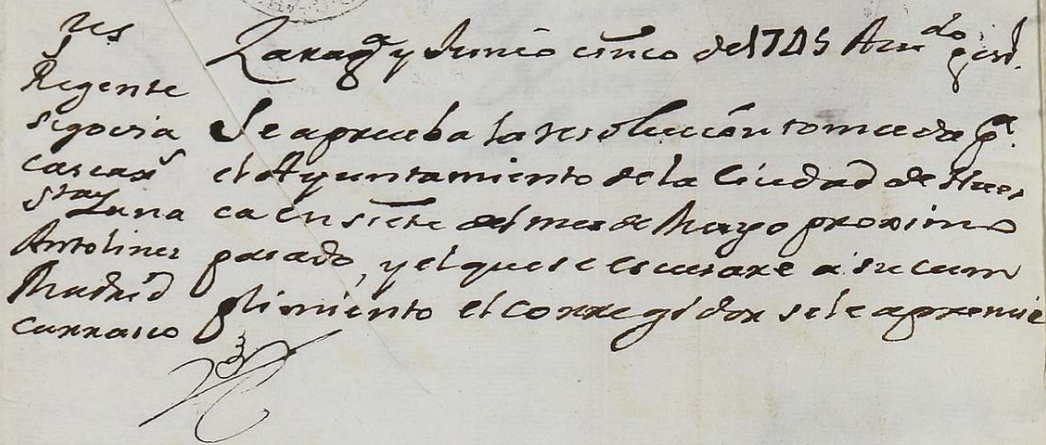 res
Regente
Segovia
Cascaxs
Sta. Luna
Antolinez
Madrid
Carrasco
Zarag.a y Junio cinco de 1745 Acu.do gen.l
Se aprueba la resolucion tomada p.r
el Ayuntamiento de la Ciudad de Hues
ca en siete del mes de Mayo proximo
pasado, y el que se escusare a su cum
plimiento el corregidor se le apremie